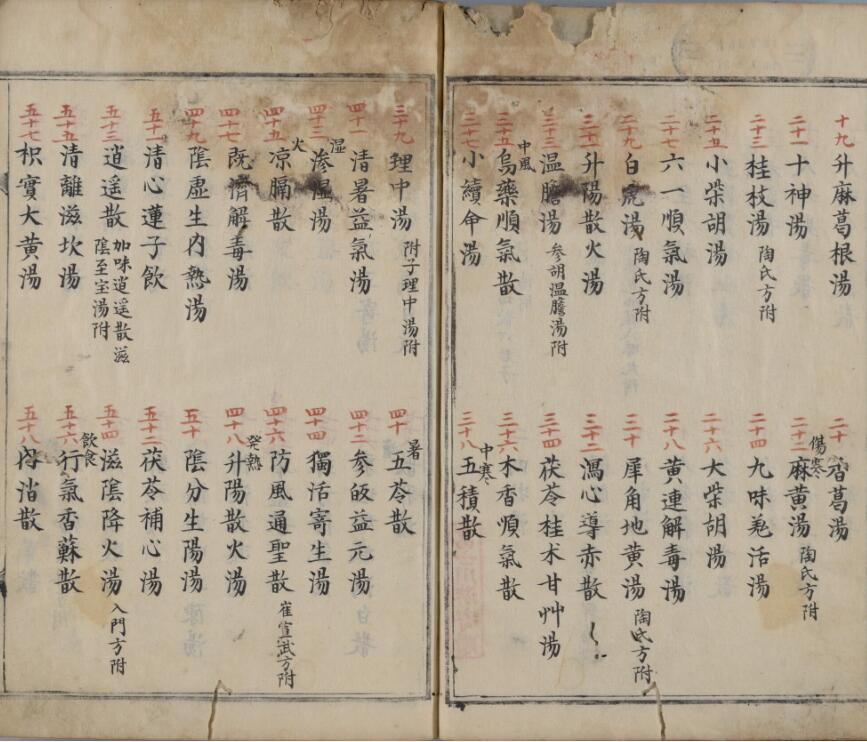 十九 升麻葛根湯
二十 香葛湯
二十一 十神湯
傷寒
二十二 麻黃湯 陶氏方附
二十三 桂枝湯 陶氏方附
二十四 九味羌活湯
二十五 小柴胡湯
二十六 大柴胡湯
二十七 六一順氣湯
二十八 黃連解毒湯
二十九 白虎湯 陶氏方附
三十 犀角地黃湯 陶氏方附
三十一 升陽散火湯
三十二 瀉心導赤散
三十三 温膽湯 参胡温膽湯附
三十四 茯苓桂朮甘艸湯
中風
三十五 烏藥順氣散
三十六 木香順氣散
三十七 小續命湯
中寒
三十八 五積散
三十九 理中湯 附子理中湯附
暑
四十 五苓散
四十一 清暑益氣湯
四十二 参歸益元湯
湿
四十三 滲湿湯
四十四 獨活寄生湯
火
四十五 凉膈散
四十六 防風通聖散 崔宣武方附
四十七 既濟解毒湯
發熱
四十八 升陽散火湯
四十九 陰虛生內熱湯
五十 陰分生陽湯
五十一 清心蓮子飲
五十二 茯苓補心湯
五十三 逍遥散 加味逍遥散滋
陰至宝湯附
五十四 滋陰降火湯 入門方附
五十五 清離滋坎湯
飲食
五十六 行氣香蘇散
五十七 枳實大黄湯
五十八 內消散